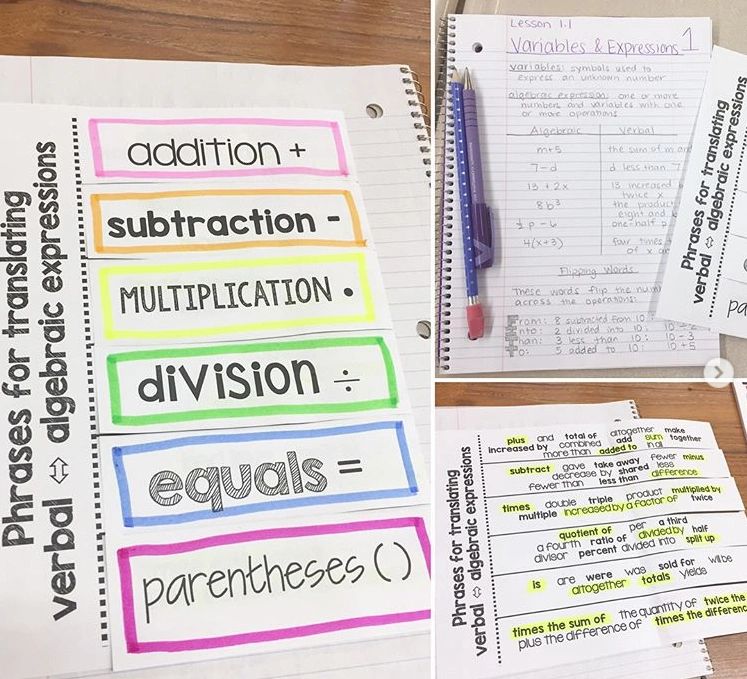 Phrases for translating
verbal ⇔ algebraic expressions
addition +
subtraction -
MULTIPLICATION •
division ÷
equals =
parentheses ( )
Lesson 1.1
Variables & Expressions 1
variables: symbols used to
express an unknown number
algebraic expression: one or more
numbers and variables with one
or more operations
Algebraic Verbal
m+5 the sum of m and
7-d d less than 7
13 + 2x 13 increased
twice x
8b³ the product
eight and b
½p - 6 one-half p
4(x+3) four times
of x
Flipping Words
These words flip the num
across the operations:
from: 8 subtracted from 10:
into: 2 divided into 10: 10÷2
than: 3 less than 10: 10-3
to: 5 added to 10: 10+5
Phrases for translating
verbal ⇔ algebraic expressions
pa
Phrases for translating
verbal ⇔ algebraic expressions
plus and total of altogether make
increased by combined add sum together
more than added to in all
subtract gave take away fewer minus
decrease by shared less
fewer than less than difference
times double triple product multiplied by
multiple increased by a factor of twice
quotient of per a third
a fourth ratio of divided by half
divisor percent divided into split up
is are were was sold for will be
altogether totals yields
times the sum of the quantity of twice the
plus the difference of times the differenc